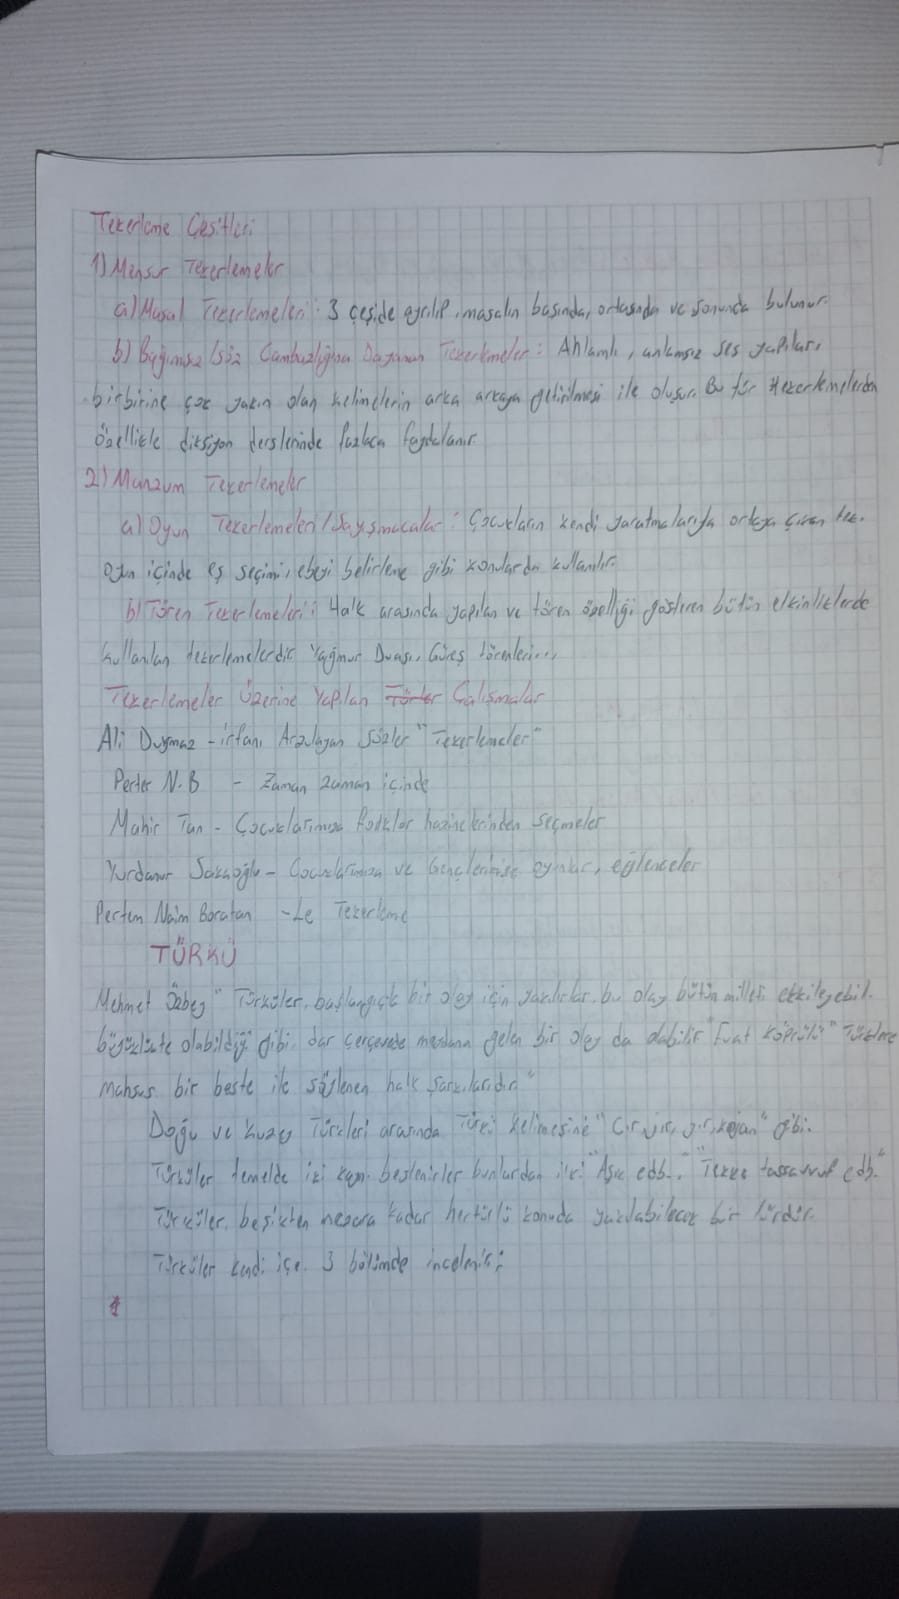 Tekerleme Çeşitleri
1) Mensur Tekerlemeler
a) Masal Tekerlemeleri: 3 çeşide ayrılıp, masalın başında, ortasında ve sonunda bulunur.
b) Bağımsız/Söz Cambazlığına Dayanan Tekerlemeler: Anlamlı, anlamsız ses yapıları,
birbirine çok yakın olan kelimelerin arka arkaya getirilmesi ile oluşur. Bu tür tekerlemelerden
özellikle diksiyon derslerinde fazlaca faydalanır
2) Manzum Tekerlemeler
a) Oyun Tekerlemeleri/Sayışmacalar: Çocukların kendi yaratmalarıyla ortaya çıkan tek.
oyun içinde eş seçimi, ebeyi belirleme gibi konularda kullanılır.
b) Tören Tekerlemeleri: Halk arasında yapılan ve tören özelliği gösteren bütün etkinliklerde
kullanılan tekerlemelerdir Yağmur Duası, Güreş törenleri...
Tekerlemeler Üzerine Yapılan Türler Çalışmalar
Ali Duymaz - İrfanı Arzulayan Sözler "Tekerlemeler"
Perter N.B - Zaman zaman içinde
Mahir Tan - Çocuklarımıza Folklor hazinelerinden Seçmeler
Yurdanur Sakaoğlu - Çocuklarımıza ve Gençlerimize oyunlar, eğlenceler
Perten Naim Boratan - Le Tekerleme
TÜRKÜ
Mehmet Özbey "Türküler, başlangıçta bir olay için yakılırlar. bu olay bütün milleti etkileyebil.
büyüklükte olabildiği gibi, dar çerçevede meydana gelen bir olay da olabilir "Fuat Köprülü" Türklere
mahsus bir beste ile söylenen halk şarkılarıdır."
Doğu ve Kuzey Türkleri arasında Türkü kelimesine "Cır, yır, kojan" gibi.
Türküler temelde iki kay. beslenirler bunlardan ilki "Aşık edb.." "Tekke tassavvuf edb."
Türküler, beşikten mezara kadar hertürlü konuda yakılabilecek bir türdür.
Türküler kendi içe. 3 bölümde incelenir;